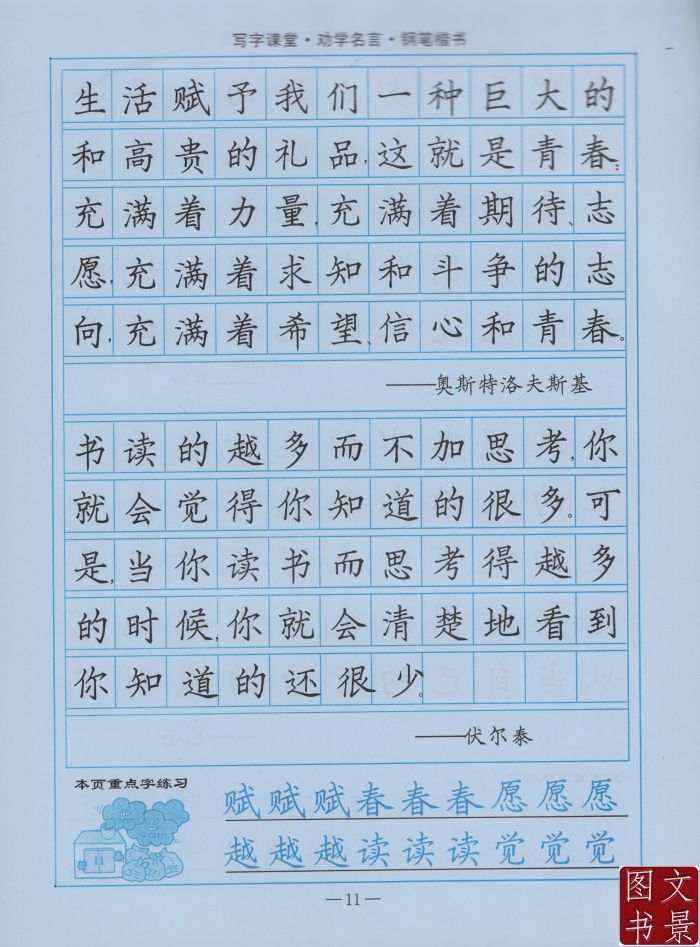 写字课堂·劝学名言·钢笔楷书
生活赋予我们一种巨大的
和高贵的礼品,这就是青春:
充满着力量,充满着期待、志
愿,充满着求知和斗争的志
向,充满着希望、信心和青春。
——奥斯特洛夫斯基
书读的越多而不加思考,你
就会觉得你知道的很多。可
是,当你读书而思考得越多
的时候,你就会清楚地看到
你知道的还很少。
——伏尔泰
本页重点字练习
赋赋赋春春春愿愿愿
越越越读读读觉觉觉
—11—
图文
书景